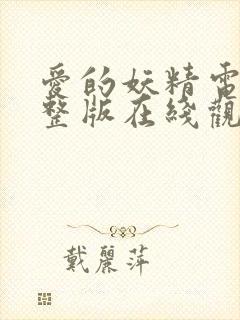 愛的妖精電
整版在綫觀
戴麗萍